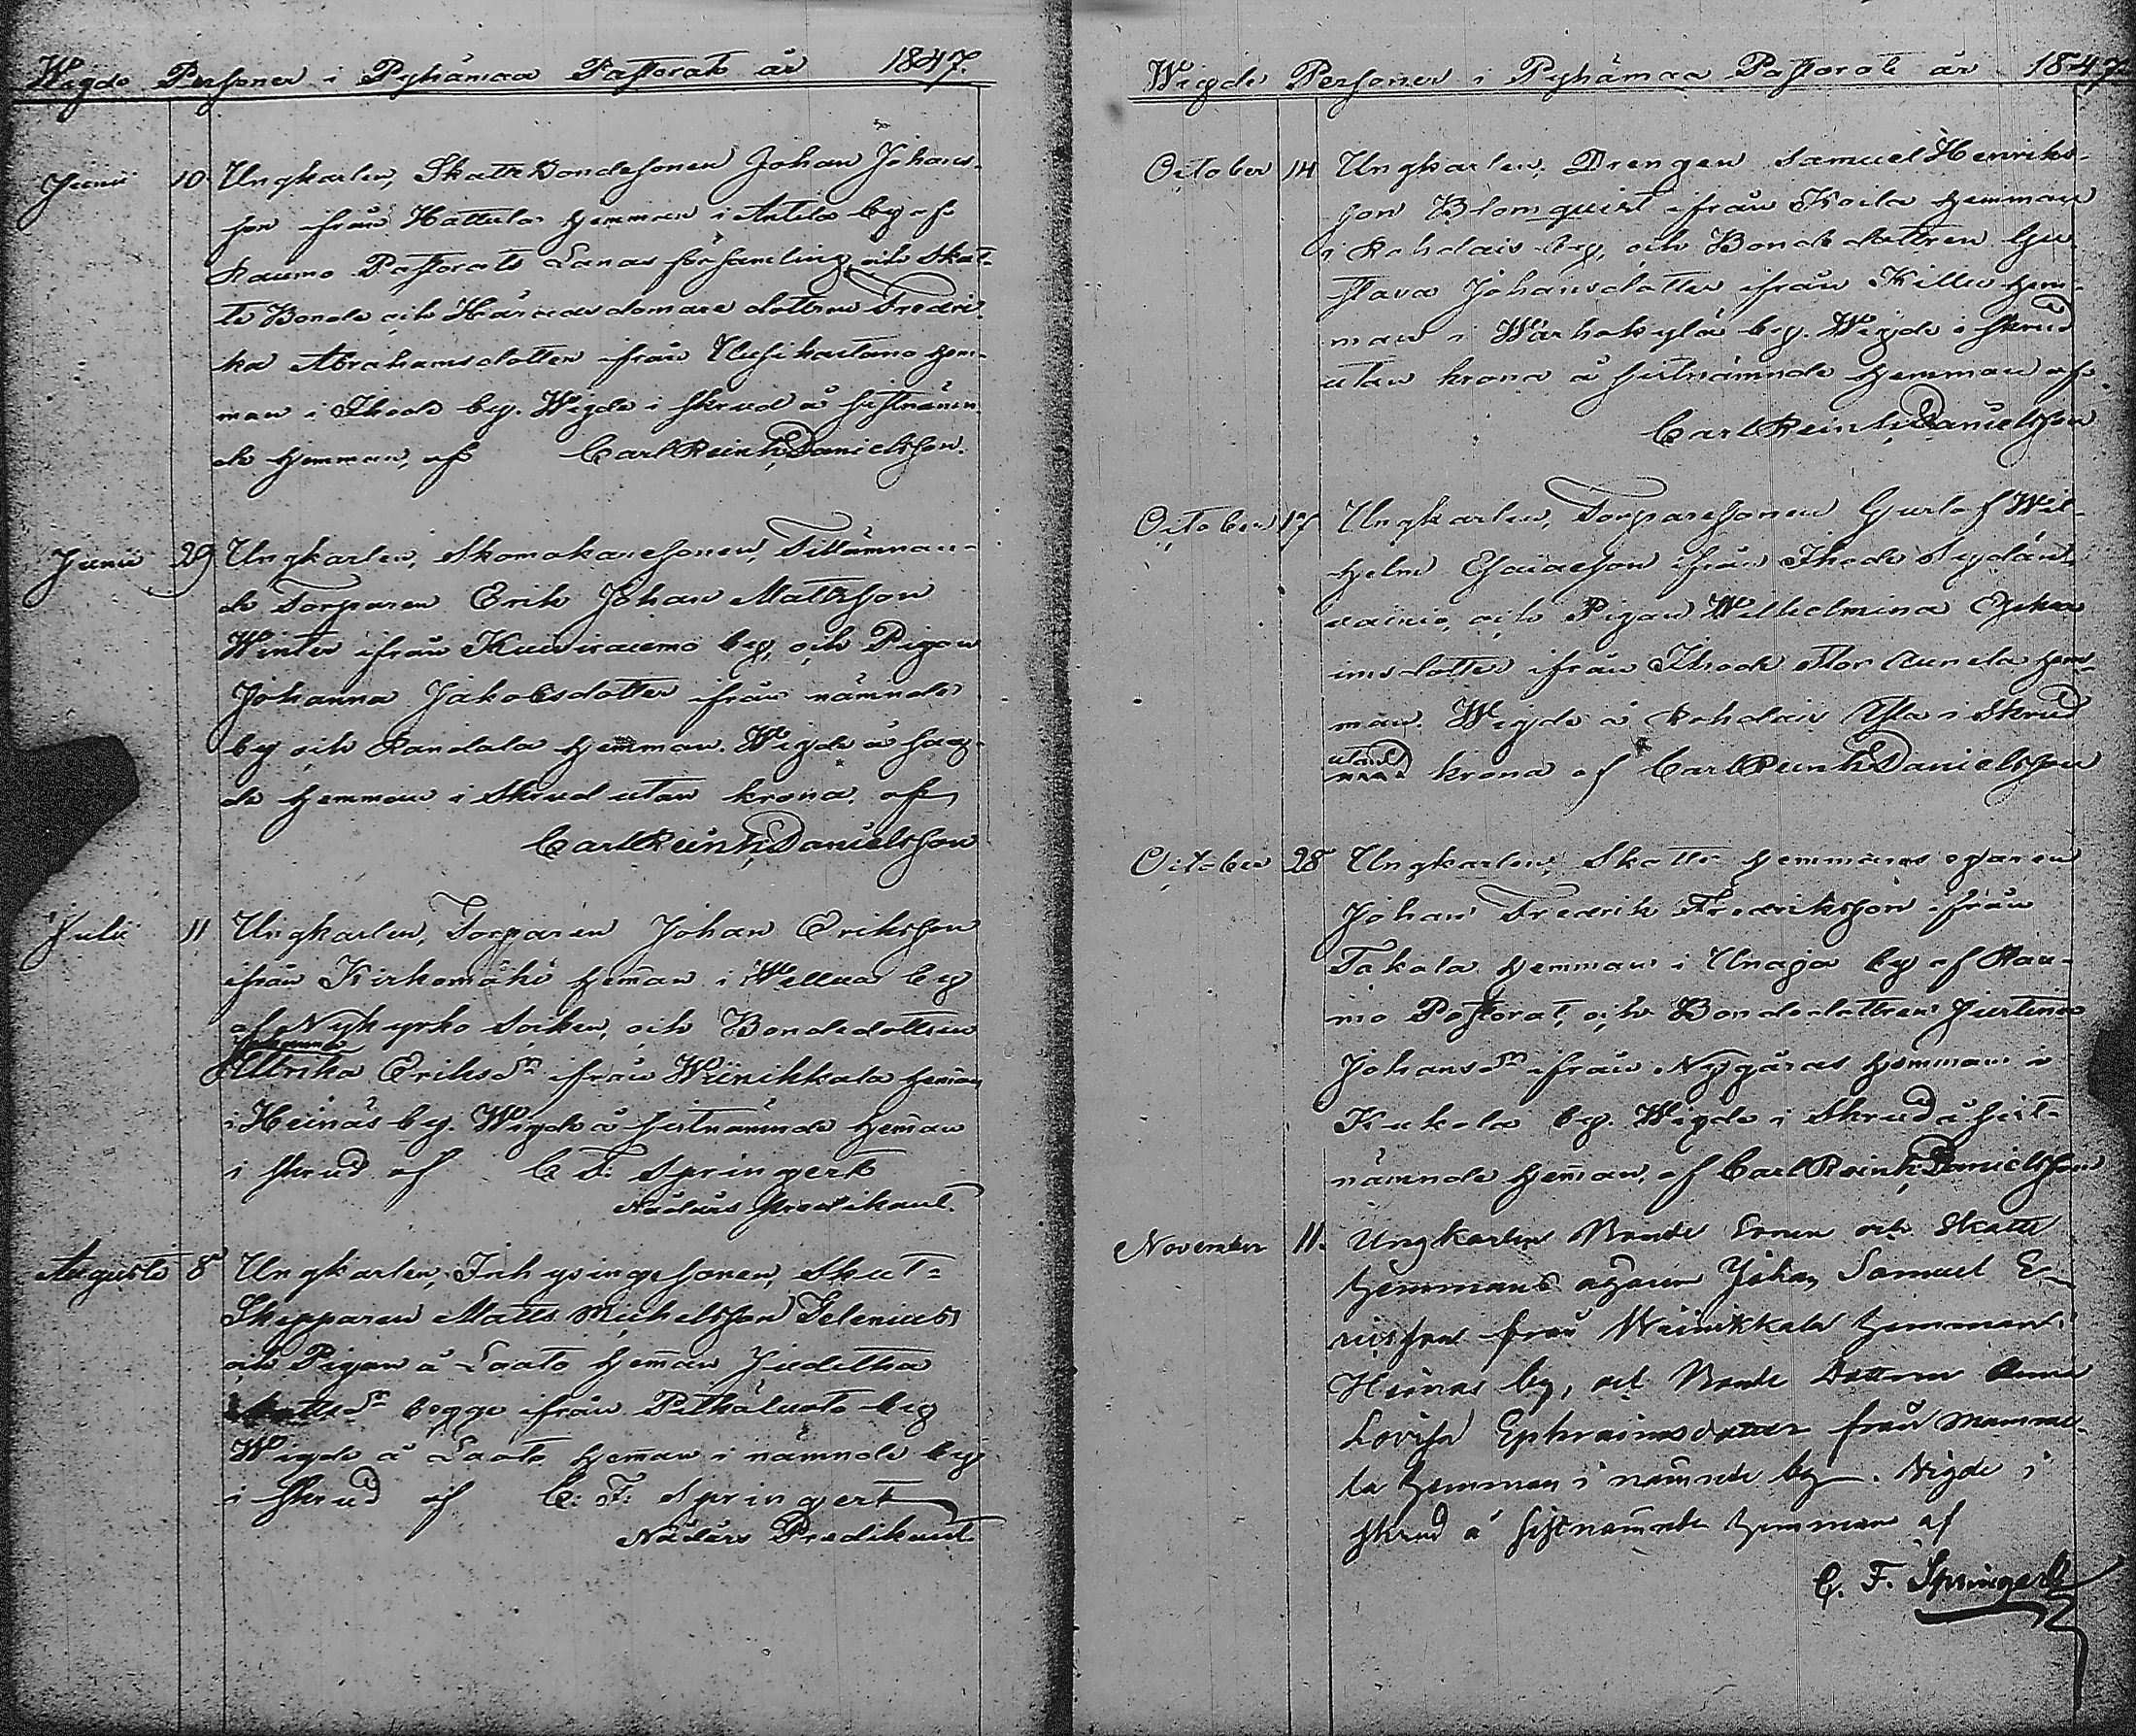 Wigde Personer i Pyhämaa Pastorat år 1847.
Junii 10 Ungkarlen, Skatte Bondesonen Johan Johans-
son ifrån Hattula Hemman i Anttila by af
Raumo Pastorats Lappi församling, och Skat-
te Bonde och Häradsdomare dottren Fredri-
ka Abrahamsdotter ifrån Uusikartano Hem-
man i Ihode by. Wigde i skrud å sistnämn-
de Hemman, af Carl Reinh. Danielsson.
Junii 29 Ungkarlen, Skomakaresonen, Tillämnan-
de Torparen Erik Johan Mattsson
Winter ifrån Kuivraumo by, och Pigan
Johanna Jakobsdotter ifrån nämnde
by och Randala Hemman. Wigde å sag-
de Hemman i Skrud utan krona, af
Carl Reinh. Danielsson
Julii 11 Ungkarlen, Torparen Johan Eriksson
ifrån Kirkomäki Heman i Wellua by
af Nykyrko Socken, och Bondedottren
Ulrika Eriksdr ifrån Wiinikkala Heman
i Heinäs by. Wigde å sistnämnde Heman
i skrud af C. F. Springert
Nådårs Predikant.
Augusti 8 Ungkarlen, Inhysingesonen, Skut-
Skepparen Matts Michelsson Selenius
och Pigan å Laato Heman Juditha
begge ifrån Pitkäluoto by
Wigde å Laato Heman i nämnde by
i skrud af C. F. Springert
Nådårs Predikant.
Wigde Personer i Pyhämaa Pastorat år 1847.
October 14 Ungkarlen, Drengen Samuel Henriks-
son Blomquist ifrån Koila Hemman
i Rohdais by, och Bondedottren Gu-
stava Johansdotter ifrån Killu Hem-
man i Warhokylä by. Wigde i skrud
utan krona å sistnämnde Hemman af
Carl Reinh. Danielsson
October 17 Ungkarlen, Torparesonen Gustaf Wil-
helm Esaiaeson ifrån Ihode Sydän-
vainio, och Pigan Wilhelmina Ephra-
imsdotter ifrån Ihode Stor Aunela Hem-
man. Wigde å Rohdais Ylä i Skrud
utan krona af Carl Reinh. Danielsson
October 28 Ungkarlen, Skatte Hemmans egaren
Johan Fredrik Fredriksson ifrån
Takala Hemman i Unaja by af Rau-
mo Pastorat, och Bondedottren Justina
Johansdr ifrån Nygåras Hemman i
Kukola by. Wigde i Skrud å sist-
nämnde Heman, af Carl Reinh. Danielsson
November 11. Ungkarlen Bonde Sonen och Skatte
Hemmans egaren Johan Samuel E-
ricsson från Wiinikkala Hemman i
Heinäs by, och Bonde Dottren Anna
Lovisa Ephraimsdotter från Mamma-
la Hemman i nämnde by. Wigde i
skrud å sistnämnde Hemman af
C. F. Springert